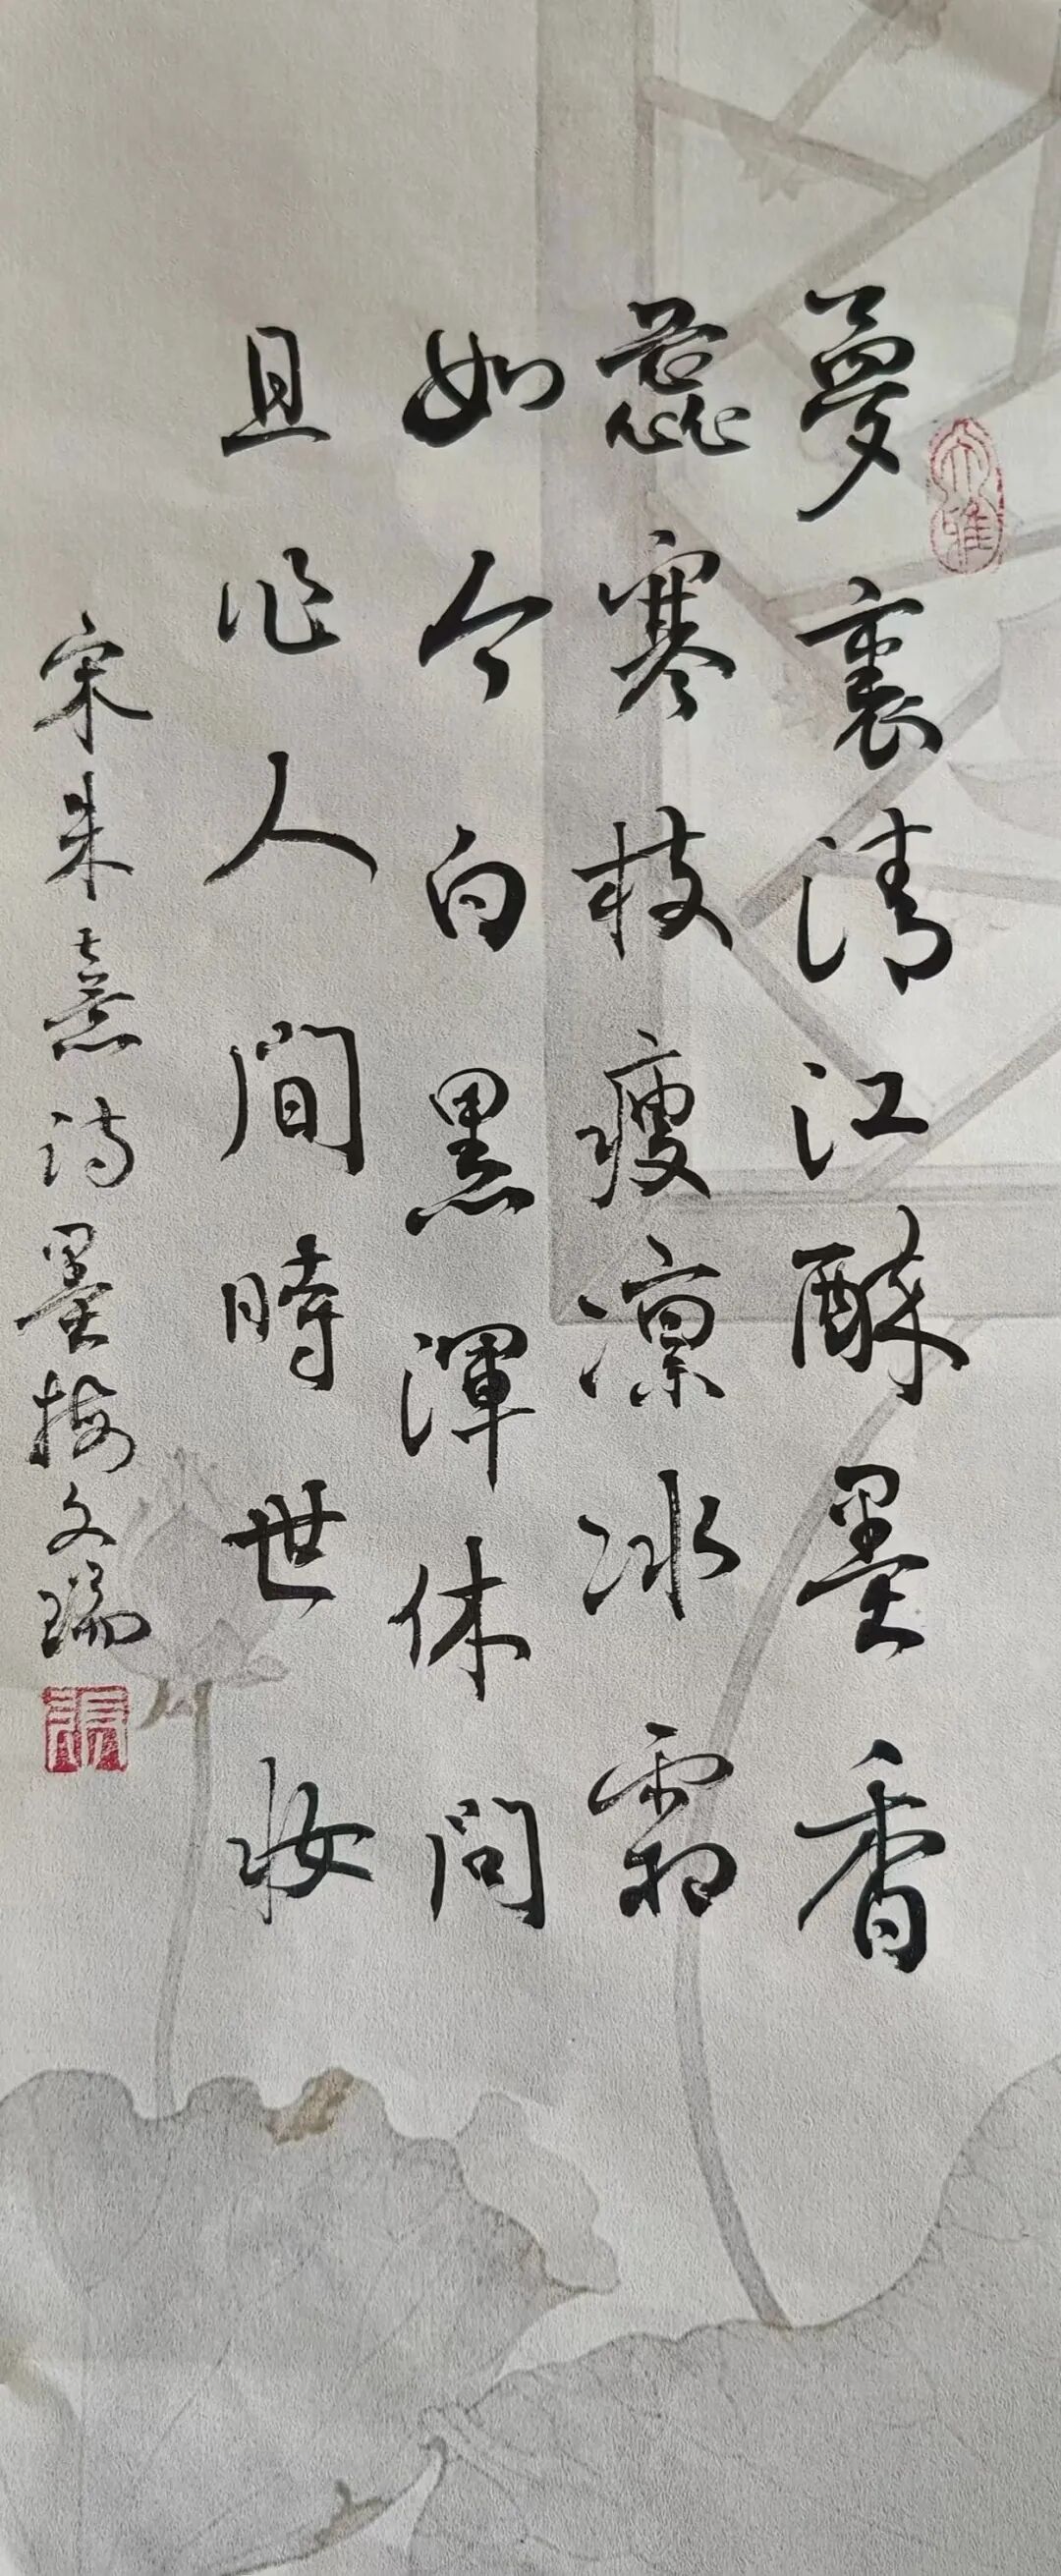 夢裏清江醉墨香
蕊寒枝瘦凛冰霜
如今白黑渾休問
且作人間時世妝
宋朱熹詩墨梅文瑞
大雅